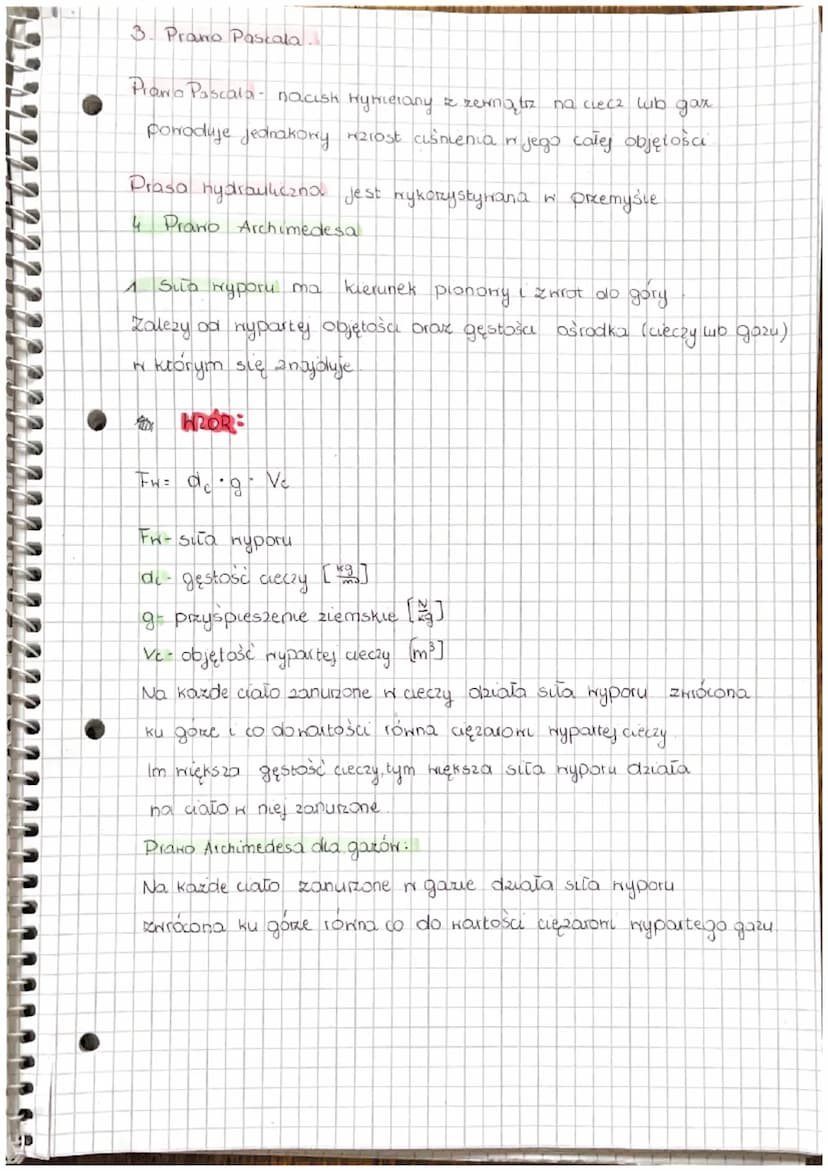 3. Prawo Pascala.
Prawo Pascala - nacisk wywierany z zewnątrz na ciecz lub gaz
powoduje jednakowy wzrost ciśnienia w jego całej objętości
Prasa hydrauliczna jest wykorzystywana w przemyśle
4 Prawo Archimedesa
1. Siła wyporu ma kierunek pionowy i zwrot do góry.
Zależy od wypartej objętości oraz gęstości ośrodka (cieczy lub gazu)
w którym się znajduje.
WZÓR:
Fw = dc · g · Vc
Fw - siła wyporu
dc - gęstość cieczy [kg/m³]
g - przyśpieszenie ziemskie [N/kg]
Vc - objętość wypartej cieczy [m³]
Na każde ciało zanurzone w cieczy działa siła wyporu zwrócona
ku górze i co do wartości równa ciężarowi wypartej cieczy.
Im większa gęstość cieczy, tym większa siła wyporu działa
na ciało w niej zanurzone.
Prawo Archimedesa dla gazów:
Na każde ciało zanurzone w gazie działa siła wyporu
zwrócona ku górze równa co do wartości ciężarowi wypartego gazu